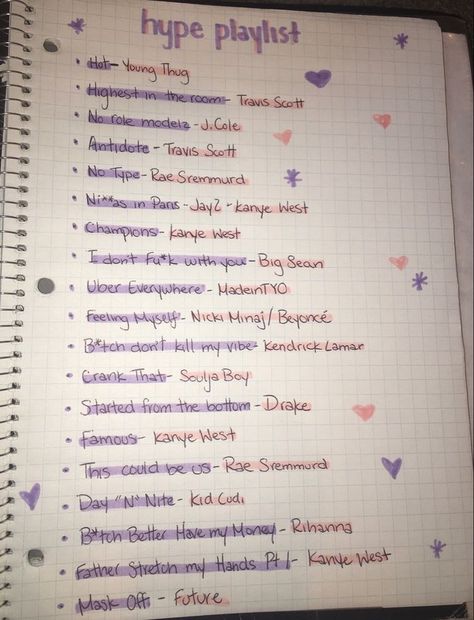 hype playlist
• Hot - Young Thug
• Highest in the room - Travis Scott
• No role modelz - J.Cole
• Antidote - Travis Scott
• No Type - Rae Sremmurd
• Ni**as in Paris - JayZ - Kanye West
• Champions - Kanye West
• I don't Fu*k with you - Big Sean
• Uber Everywhere - MadeinTYO
• Feeling Myself - Nicki Minaj/Beyoncé
• B*tch don't kill my vibe - Kendrick Lamar
• Crank That - Soulja Boy
• Started from the bottom - Drake
• Famous - Kanye West
• This could be us - Rae Sremmurd
• Day "N" Nite - Kid Cudi
• B*tch Better Have my Money - Rihanna
• Father Stretch my Hands Pt 1 - Kanye West
• Mask Off - Future